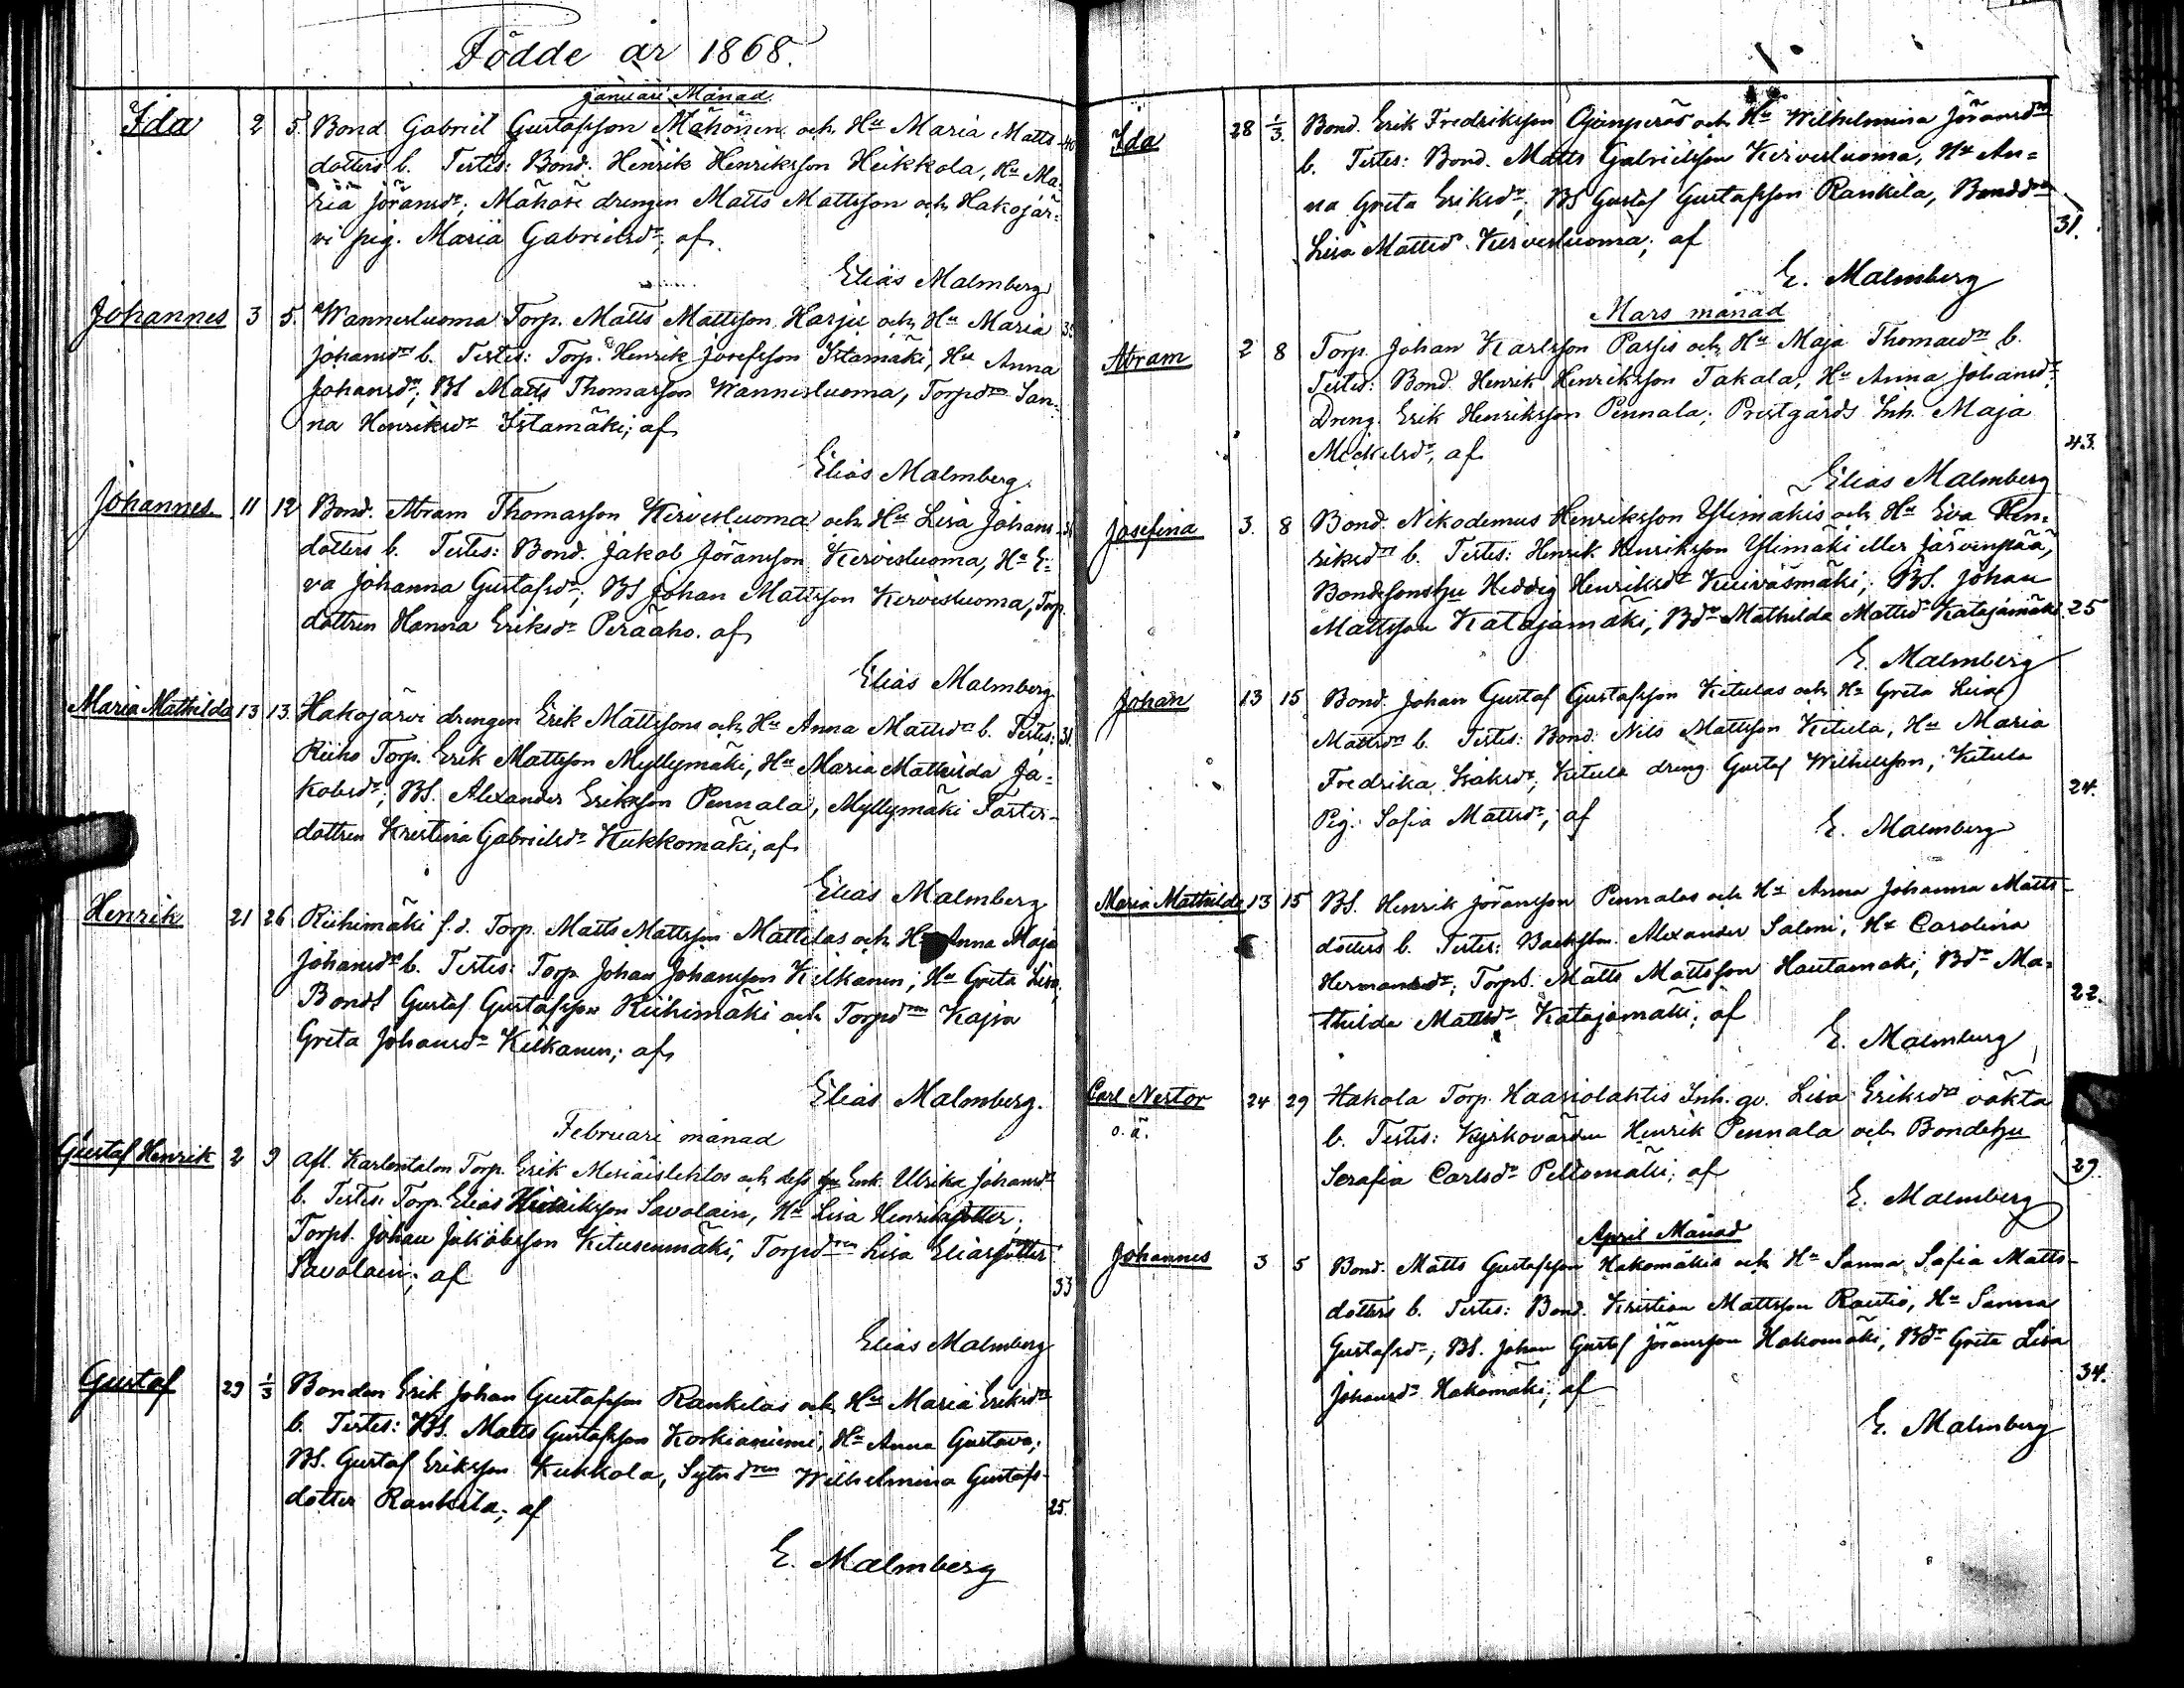 Födde år 1868.
Januari Månad.
Ida 2 5. Bond Gabriel Gustafsson Mähönen och Hu Maria Matts- 40
dotters b. Testes: Bond. Henrik Henriksson Heikkola, Hu Ma-
ria Jöransdr; Mähöne drengen Matts Mattsson och Hakojär-
vi pig. Maria Gabrielsdr, af
Elias Malmberg
Johannes 3 5. Wannesluoma Torp. Matts Mattsson Harju och Hu Maria
Johansdrs b. Testes: Torp. Henrik Josefsson Istamäki, Hu Anna
Johansdr; BS Matts Thomasson Wannesluoma, Torpdren San-
na Henriksdr Istamäki; af
Elias Malmberg
Johannes 11 12 Bond. Abram Thomasson Kirvesluoma och Hu Lisa Johans-
dotters b. Testes: Bond. Jakob Jöransson Kirvesluoma, Hu E-
va Johanna Gustafsdr; BS Johan Mattsson Kirvesluoma, Torp.
dottren Hanna Eriksdr Peräaho. af
Elias Malmberg
Maria Mathilda 13 13. Hakojärvi drengen Erik Mattssons och Hu Anna Mattsdrs b. Testes: 31.
Riiho Torp. Erik Mattsson Myllymäki, Hu Maria Mathilda Ja-
kobsdr; BS. Alexander Eriksson Pennala, Myllymäki Foster-
dottren Kristina Gabrielsdr Kukkomäki; af
Elias Malmberg
Henrik 21 26 Riihimäki f.d. Torp. Matts Mattsson Mattilas och Hu Anna Maja
Johansdrs b. Testes: Torp. Johan Johansson Kilkanen; Hu Greta Lisa,
BondS Gustaf Gustafsson Riihimäki och Torpdren Kajsa
Greta Johansdr Kilkanen; af
Elias Malmberg.
Februari månad
Gustaf Henrik 2 9 Afl. Karlentalon Torp. Erik Mesiäislehtos och dess Enk. Ulrika Johansdrs
b. Testes: Torp. Elias Henriksson Savolain, Hu Lisa Henriksdotter;
TorpS. Johan Jakobsson Kitusenmäki, Torpdren Lisa Eliasdotter
Savolain; af 33
Elias Malmberg
Gustaf 29 1/3 Bonden Erik Johan Gustafsson Rankilas och Hu Maria Eriksdrs
b. Testes: BS. Matts Gustafsson Korkianiemi, Hu Anna Gustava;
BS. Gustaf Eriksson Kukkola, Sytndren Wilhelmina Gustafs-
dotter Rankila; af 25.
E. Malmberg
Ida 28 1/3. Bond. Erik Fredriksson Ojanperäs och Hu Wilhelmina Jöransdrs
b. Testes: Bond. Matts Gabrielsson Kirvesluoma, Hu An-
na Greta Eriksdr; BS Gustaf Gustafsson Rankila, Bonddren
Lisa Mattsdr Kirvesluoma; af 31.
E. Malmberg
Mars månad
Abram 2 8 Torp. Johan Karlsson Passis och Hu Maja Thomasdrs b.
Testes: Bond. Henrik Henriksson Takala, Hu Anna Johansdr;
Dreng. Erik Henriksson Pennala; Prestgårds Inh. Maja
Mickelsdr, af 43.
Elias Malmberg
Josefina 3. 8 Bond. Nikodemus Henriksson Ylimäkis och Hu Eva Hen-
riksdrs b. Testes: Henrik Henriksson Ylimäki eller Järvenpää,
Bondesonshu Heddig Henriksdr Kuiväsmäki; BS. Johan
Mattsson Katajamäki, Bdr Mathilda Mattsdr Katajamäki. 25
E. Malmberg
Johan 13 15 Bond. Johan Gustaf Gustafsson Kitulas och Hu Greta Lisa
Mattsdrs b. Testes: Bond. Nils Mattsson Kitula, Hu Maria
Fredrika Isaksdr; Kitula dreng Gustaf Wilhelsson, Kitula
Pig. Sofia Mattsdr; af 24.
E. Malmberg
Maria Mathilda 13 15 BS. Henrik Jöransson Pennalas och Hu Anna Johanna Matts-
dotters b. Testes: Backstm. Alexander Salmi, Hu Carolina
Hermansdr; TorpS. Matts Mattsson Hautamäki, Bdr Ma-
thilda Mattsdr Katajamäki; af 22.
E. Malmberg
Carl Nestor 24 29 Hakola Torp. Haasiolahtis Inh. qv. Lisa Eriksdrs oäkta
o. ä. b. Testes: Kyrkovärden Henrik Pennala och Bondehu
Serafia Carlsdr Peltomäki; af 29.
E. Malmberg
April Månad
Johannes 3 5 Bond. Matts Gustafsson Hakomäkis och Hu Sanna Sofia Matts-
dotters b. Testes: Bond. Kristian Mattsson Rautio, Hu Sanna
Gustafsdr; BS. Johan Gustaf Jöransson Hakomäki, Bdr Greta Lisa
Johansdr Hakomäki; af 34.
E. Malmberg